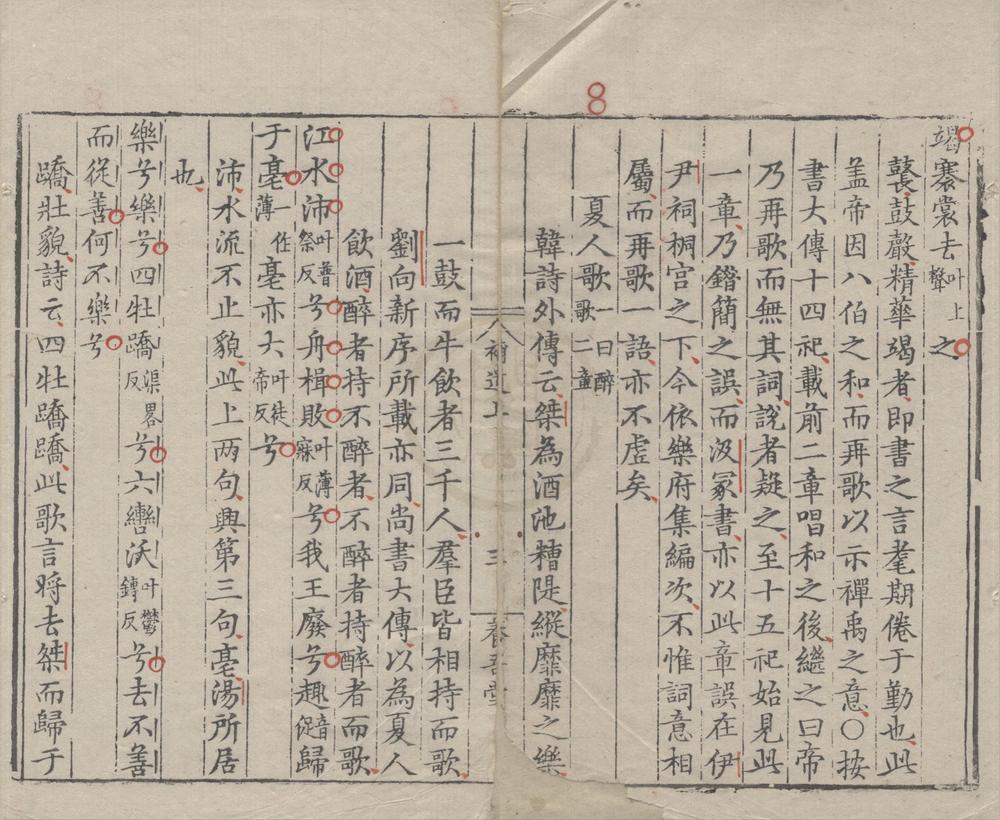 竭褰裳去叶上聲之
鼚鼓聲精華竭者即書之言耄期倦于勤也此
盖帝因八伯之和而再歌以示禪禹之意○按
書大傳十四祀載前二章唱和之後繼之曰帝
乃再歌而無其詞說者疑之至十五祀始見此
一章乃錯簡之誤而汲冢書亦以此章誤在伊
尹祠桐宮之下今依樂府集編次不惟詞意相
屬而再歌一語亦不虛矣
夏人歌一曰醉歌二章
韓詩外傳云桀為酒池糟隄縱靡靡之樂
補遺上
三
一鼓而牛飲者三千人羣臣皆相持而歌
劉向新序所載亦同尚書大傳以為夏人
飲酒醉者持不醉者不醉者持醉者而歌
江水沛叶普祭反兮舟楫敗叶薄寐反兮我王廢兮趣音促歸
于亳一作薄亳亦大叶徒帝反兮
沛水流不止貌此上两句興第三句亳湯所居
也
樂兮樂兮四牡蹻渠畧反兮六轡沃叶鬱鏄反兮去不善
而從善何不樂兮
蹻壯貌詩云四牡蹻蹻此歌言將去桀而歸于